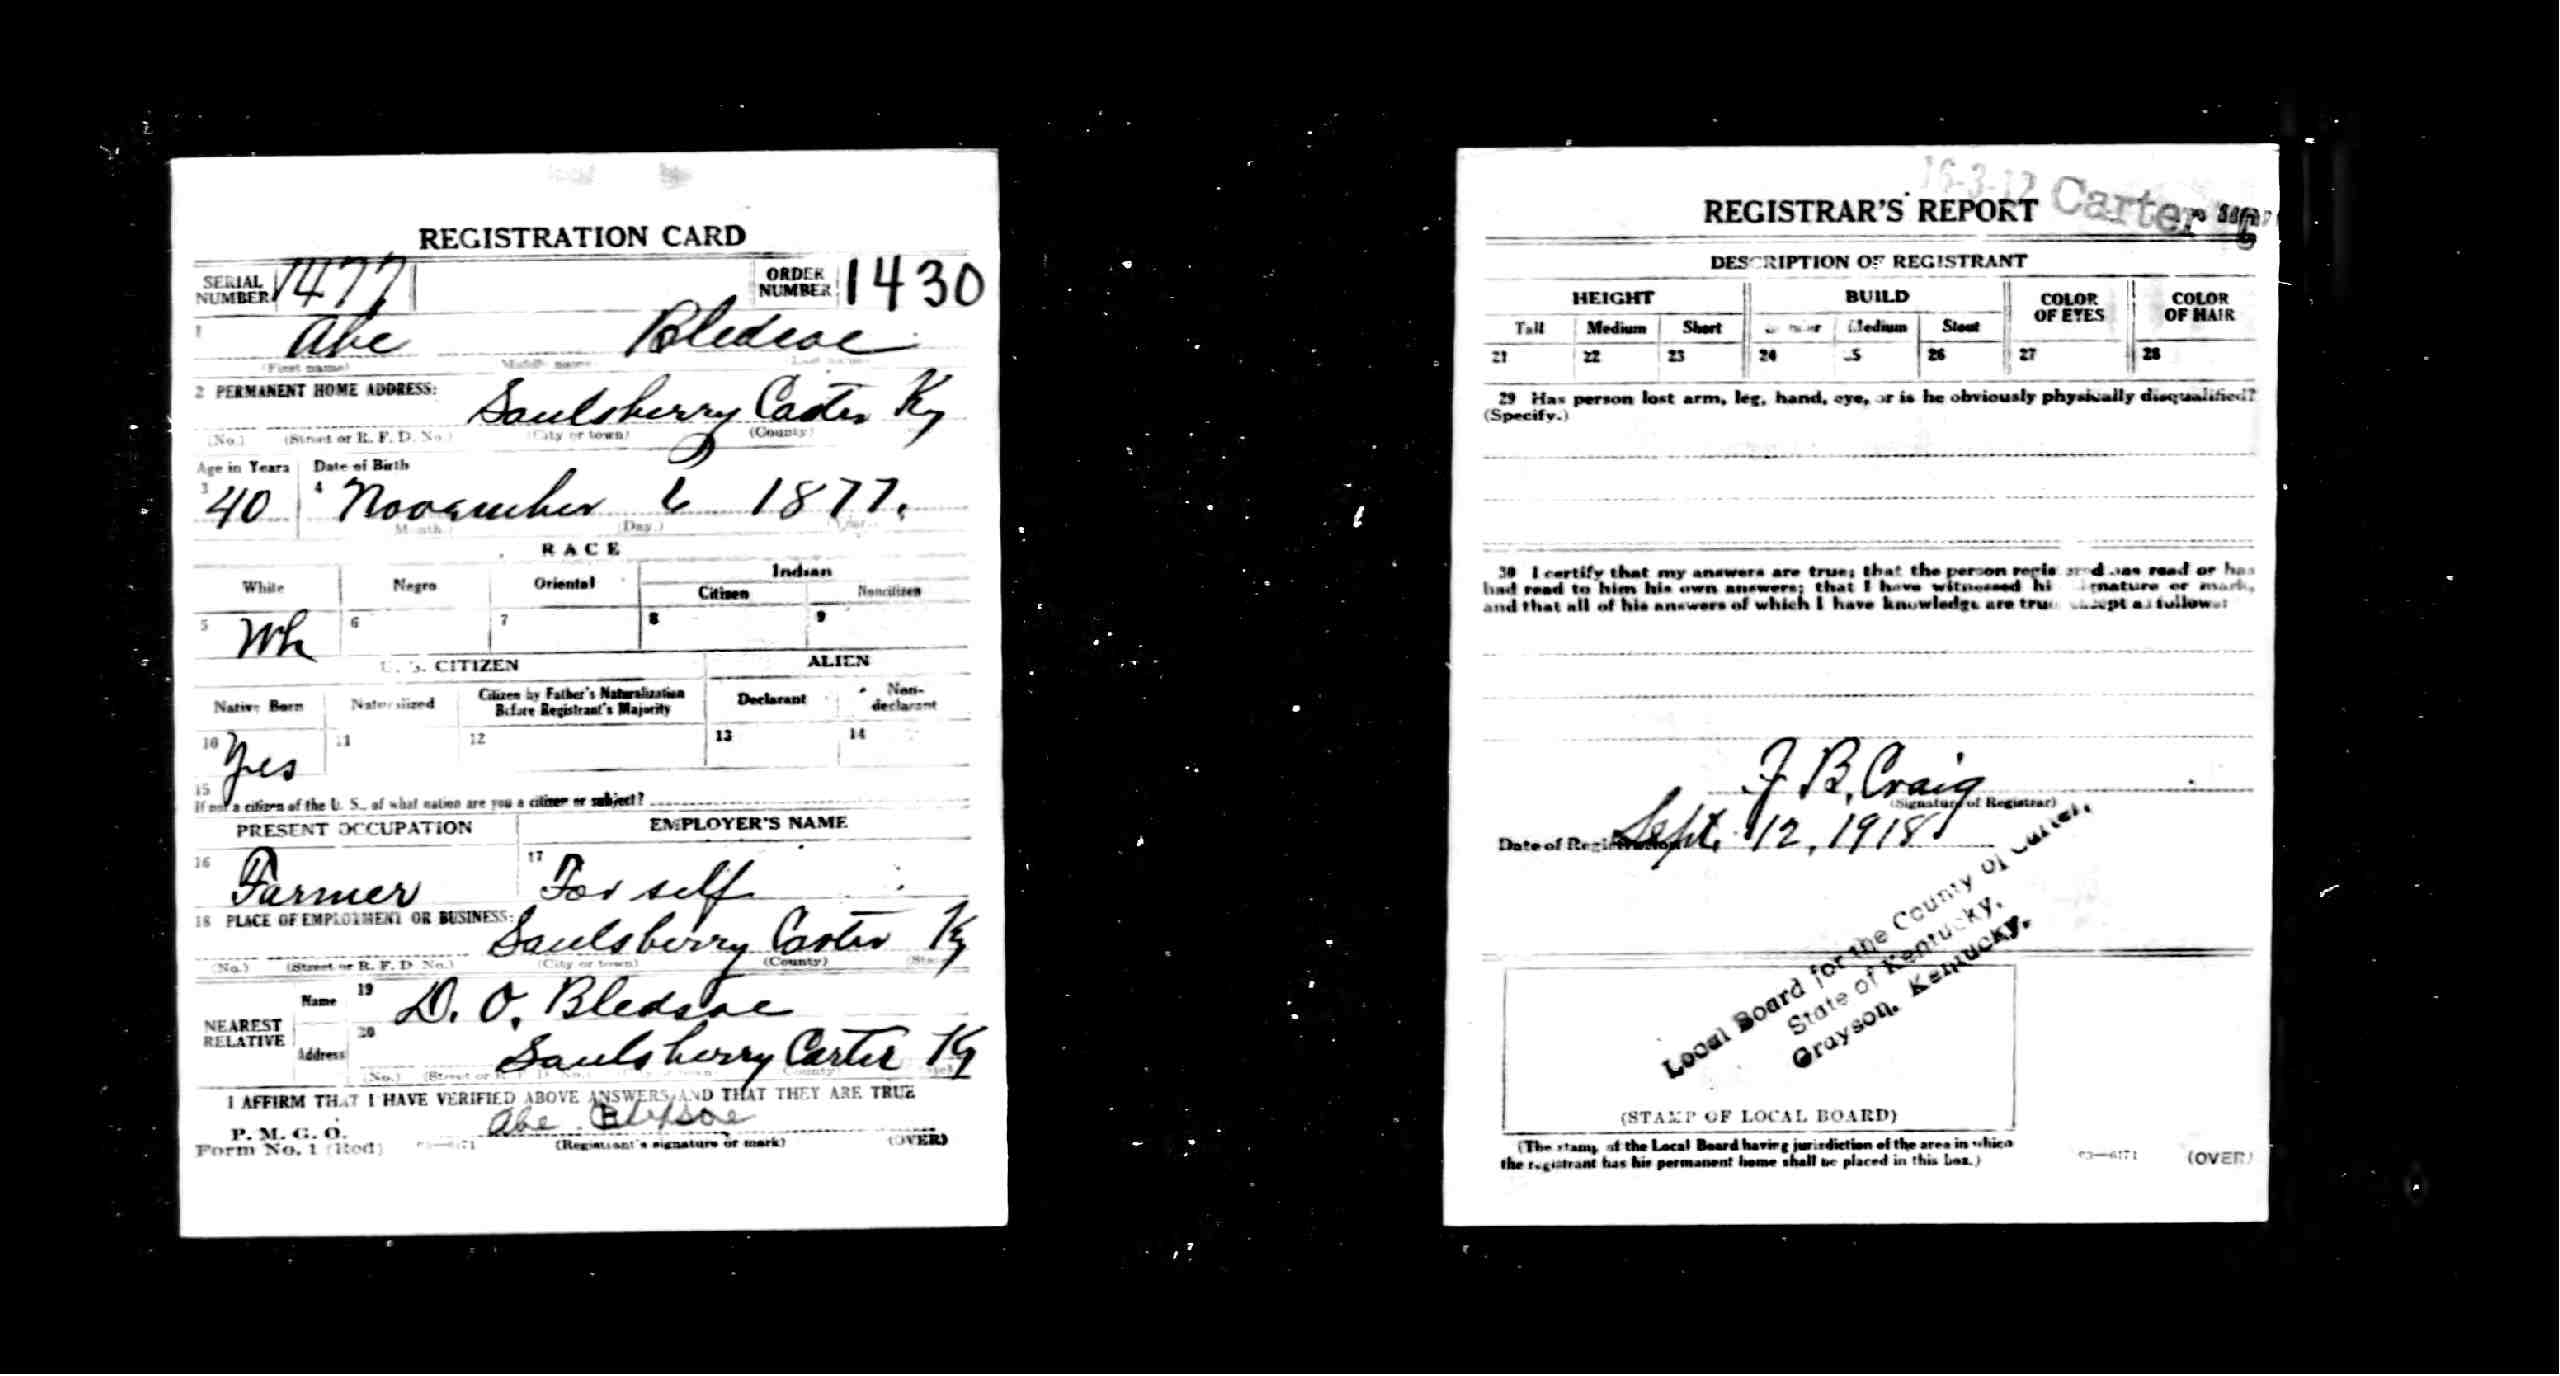 REGISTRATION CARD
SERIAL NUMBER 1477 ORDER NUMBER 1430
1 Abe Bledsoe
(First name) Middle name Last name
2 PERMANENT HOME ADDRESS:
Saulsberry Carter Ky
(No.) (Street or R. F. D. No.) (City or town) (County)
Age in Years Date of Birth
3 40 4 November 6 1877.
Month.) (Day.) Year
RACE
White Negro Oriental Indian
Citizen Noncitizen
5 Wh 6 7 8 9
U. S. CITIZEN ALIEN
Native Born Naturalized Citizen by Father's Naturalization Before Registrant's Majority Declarant Non-declarant
10 Yes 11 12 13 14
15
If not a citizen of the U. S., of what nation are you a citizen or subject?
PRESENT OCCUPATION EMPLOYER'S NAME
16 Farmer 17 For self
18 PLACE OF EMPLOYMENT OR BUSINESS:
Saulsberry Carter Ky
(No.) (Street or R. F. D. No.) (City or town) (County) (State
NEAREST RELATIVE
Name 19 D. O. Bledsoe
Address 20 Saulsberry Carter Ky
(No.) (Street or R. F. D. No.) City or town County State
I AFFIRM THAT I HAVE VERIFIED ABOVE ANSWERS AND THAT THEY ARE TRUE
Abe Bledsoe
P. M. G. O.
Form No. 1 (Red) 03—6171 (Registrant's signature or mark) (OVER)
16-3-12 Carter
REGISTRAR'S REPORT
DESCRIPTION OF REGISTRANT
HEIGHT BUILD COLOR OF EYES COLOR OF HAIR
Tall Medium Short Slender Medium Stout
21 22 23 24 25 26 27 28
29 Has person lost arm, leg, hand, eye, or is he obviously physically disqualified?
(Specify.)
30 I certify that my answers are true; that the person registered has read or has
had read to him his own answers; that I have witnessed his signature or mark,
and that all of his answers of which I have knowledge are true, except as follows:
J. B. Craig
(Signature of Registrar)
Date of Registration Sept. 12, 1918
Local Board for the County of Carter,
State of Kentucky,
Grayson, Kentucky.
(STAMP OF LOCAL BOARD)
(The stamp of the Local Board having jurisdiction of the area in which
the registrant has his permanent home shall be placed in this box.)
03—6171 (OVER)